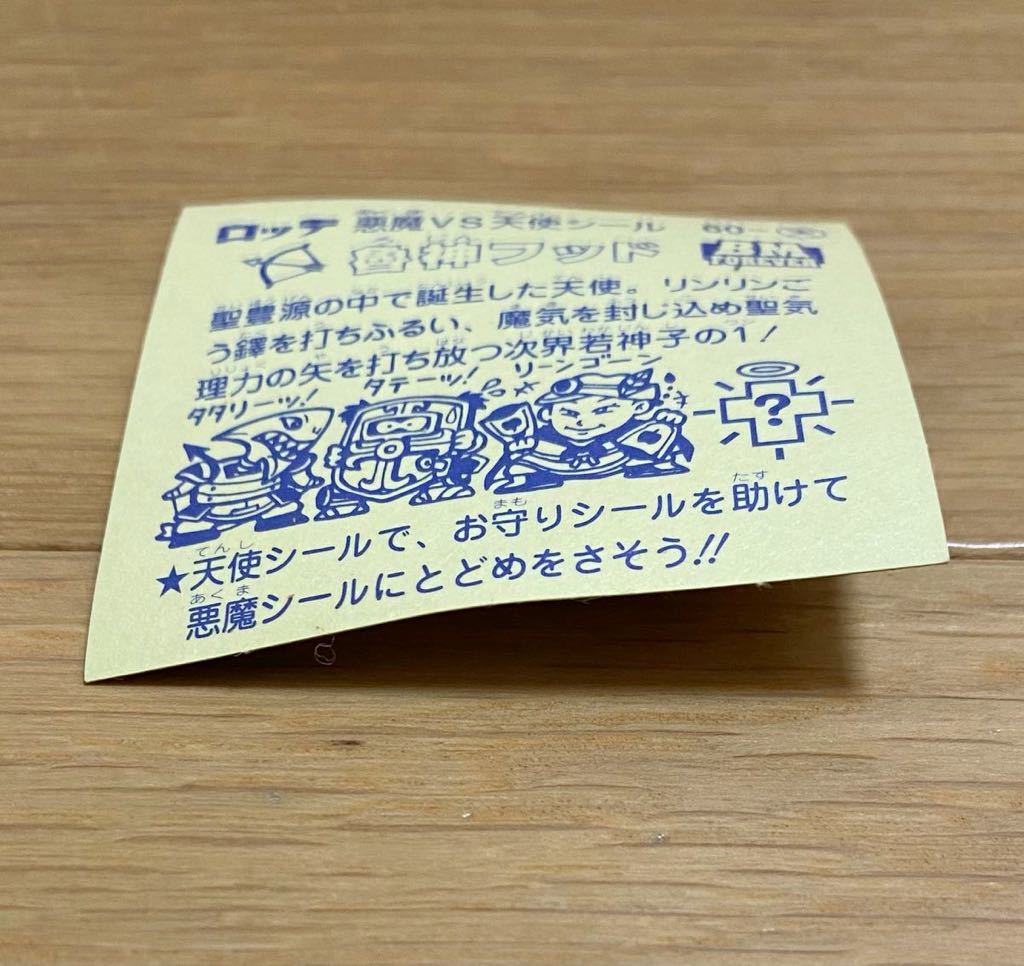 ロッテ 悪魔VS天使シール 60-
神フッド BM FOREVER
聖豊源の中で誕生した天使。リンリンご
う鐸を打ちふるい、魔気を封じ込め聖気
理力の矢を打ち放つ次界若神子の1!
タタリーツ! タテーツ! リーンゴーン
?
★天使シールで、お守りシールを助けて
てんし まも たす
悪魔シールにとどめをさそう!!
あくま